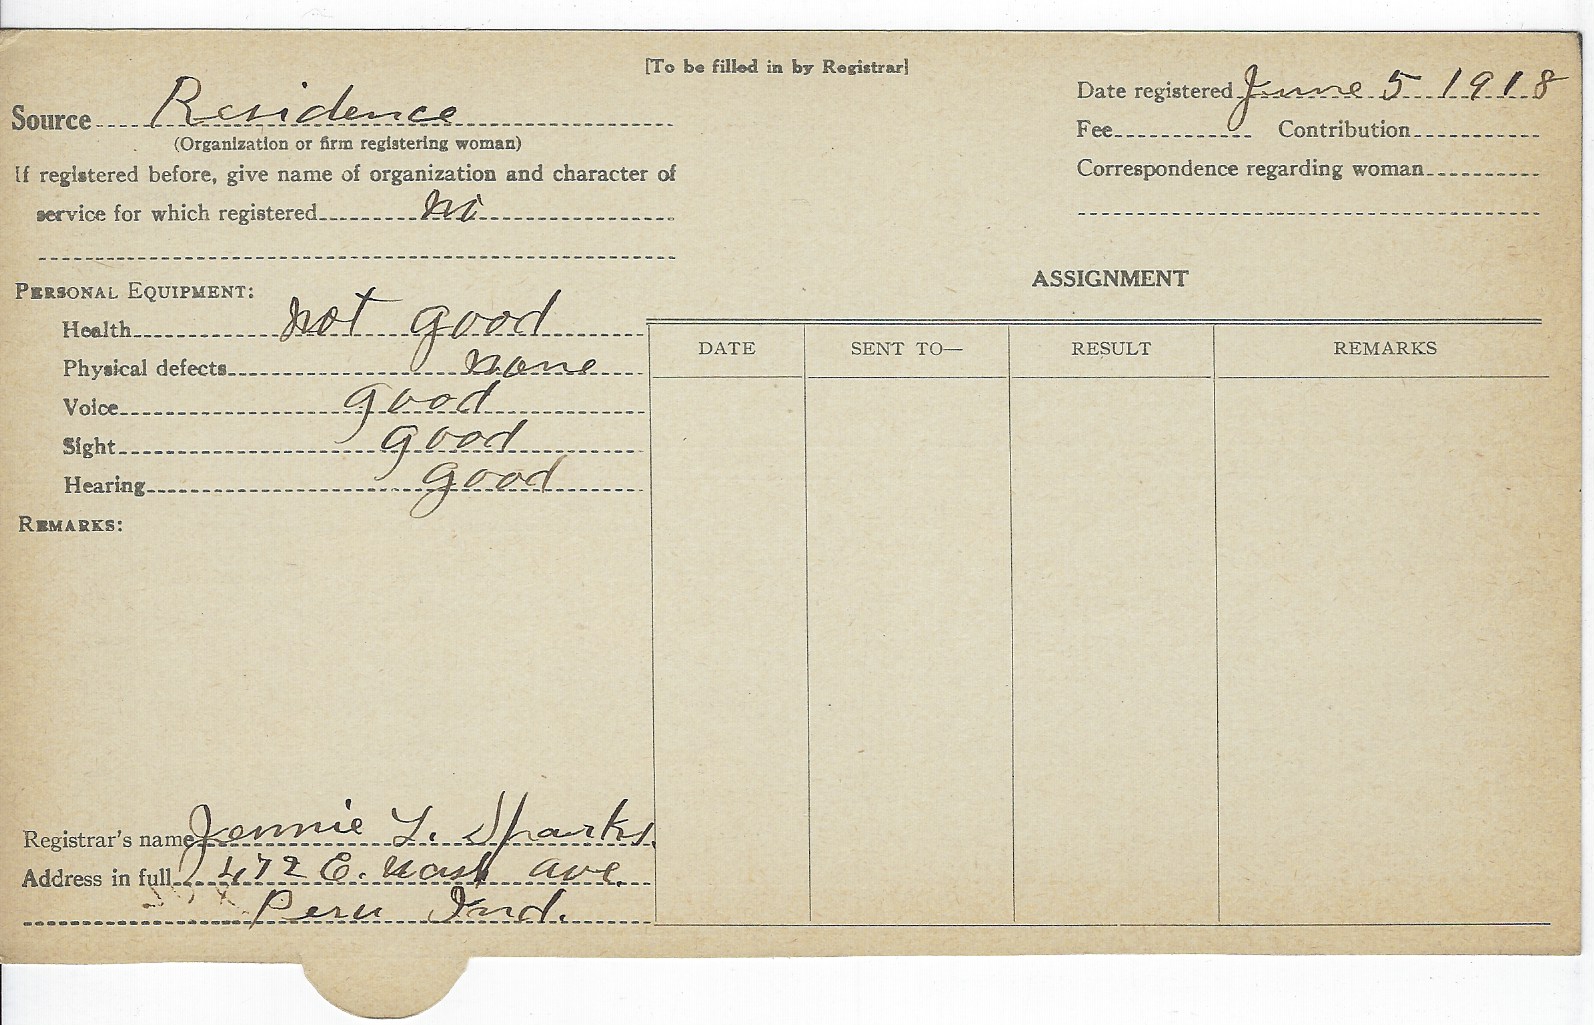 [To be filled in by Registrar]
Source Residence
(Organization or firm registering woman)
If registered before, give name of organization and character of
service for which registered no
PERSONAL EQUIPMENT:
Health not good
Physical defects none
Voice good
Sight good
Hearing good
REMARKS:
Registrar's name Jennie L. Sparks.
Address in full 472 E. Wash ave
Peru Ind.
Date registered June 5 1918
Fee Contribution
Correspondence regarding woman
ASSIGNMENT
DATE SENT TO— RESULT REMARKS